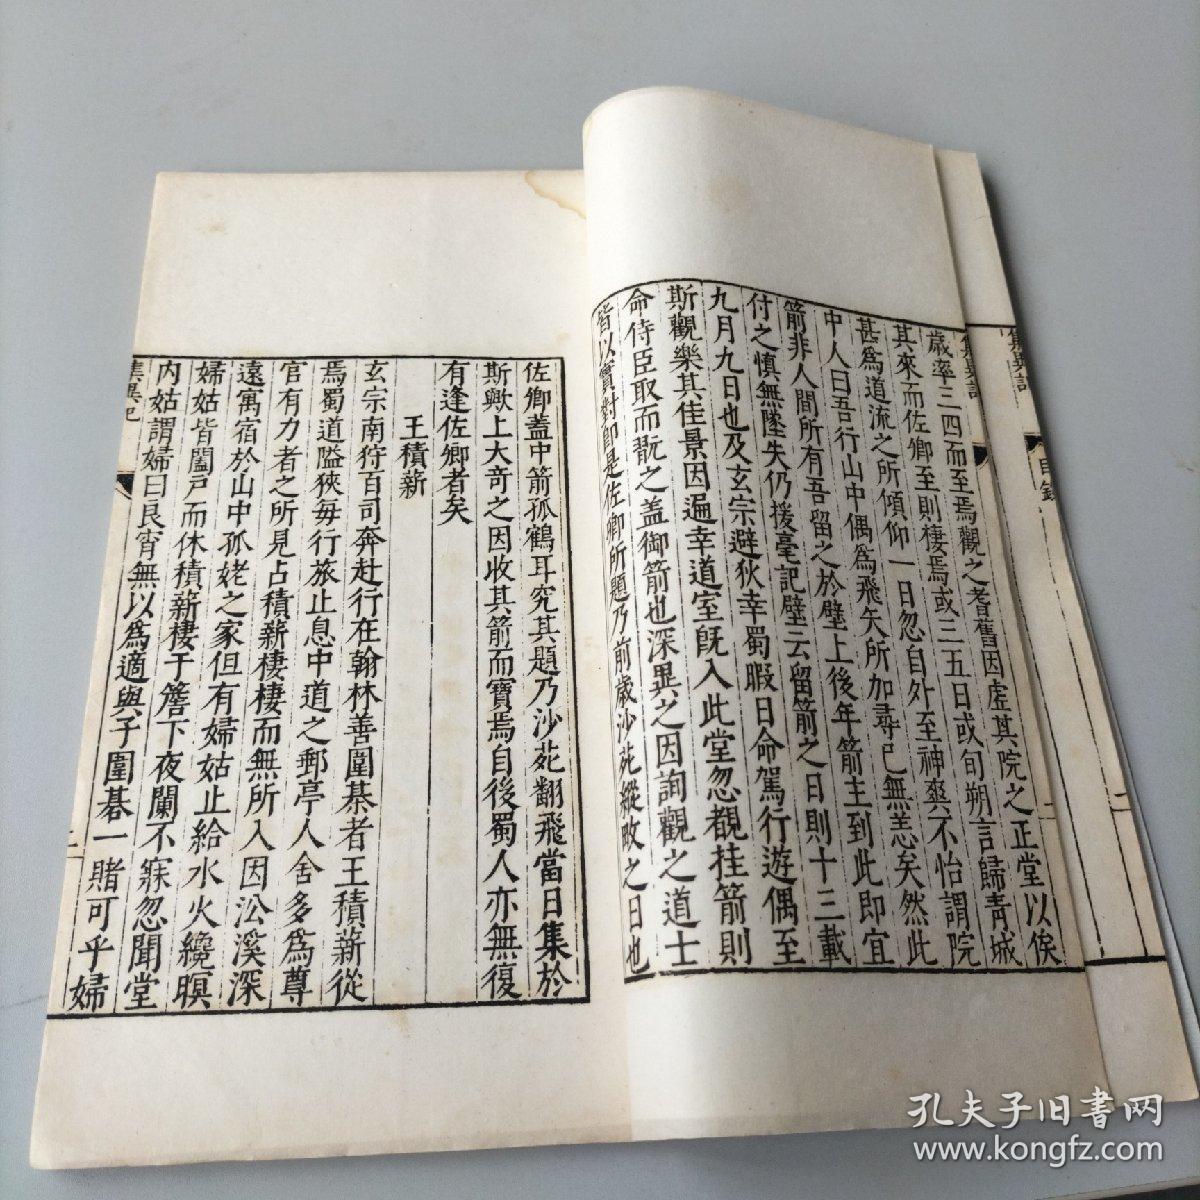 集異記
目錄
二
歲率三四而至焉觀之耆舊因虛其院之正堂以俟
其來而佐卿至則棲焉或三五日或旬朔言歸青城
甚爲道流之所傾仰一日忽自外至神爽不怡謂院
中人曰吾行山中偶爲飛矢所加尋已無恙矣然此
箭非人間所有吾留之於壁上後年箭主到此即宜
付之慎無墜失仍援毫記壁云留箭之日則十三載
九月九日也及玄宗避狄幸蜀暇日命駕行遊偶至
斯觀樂其佳景因遍幸道室旣入此堂忽覩挂箭則
命侍臣取而翫之盖御箭也深異之因詢觀之道士
皆以實對即是佐卿所題乃前歲沙苑縱畋之日也
佐卿盖中箭孤鶴耳究其題乃沙苑翻飛當日集於
斯歟上大奇之因收其箭而寶焉自後蜀人亦無復
有逢佐卿者矣
王積薪
玄宗南狩百司奔赴行在翰林善圍棊者王積薪從
焉蜀道隘狹每行旅止息中道之郵亭人舍多爲尊
官有力者之所見占積薪棲棲而無所入因㳂溪深
遠寓宿於山中孤姥之家但有婦姑止給水火纔暝
婦姑皆闔戸而休積薪棲于簷下夜闌不寐忽聞堂
内姑謂婦曰良宵無以爲適與子圍碁一賭可乎婦
集異記
二
孔夫子旧书网
www.kongfz.com